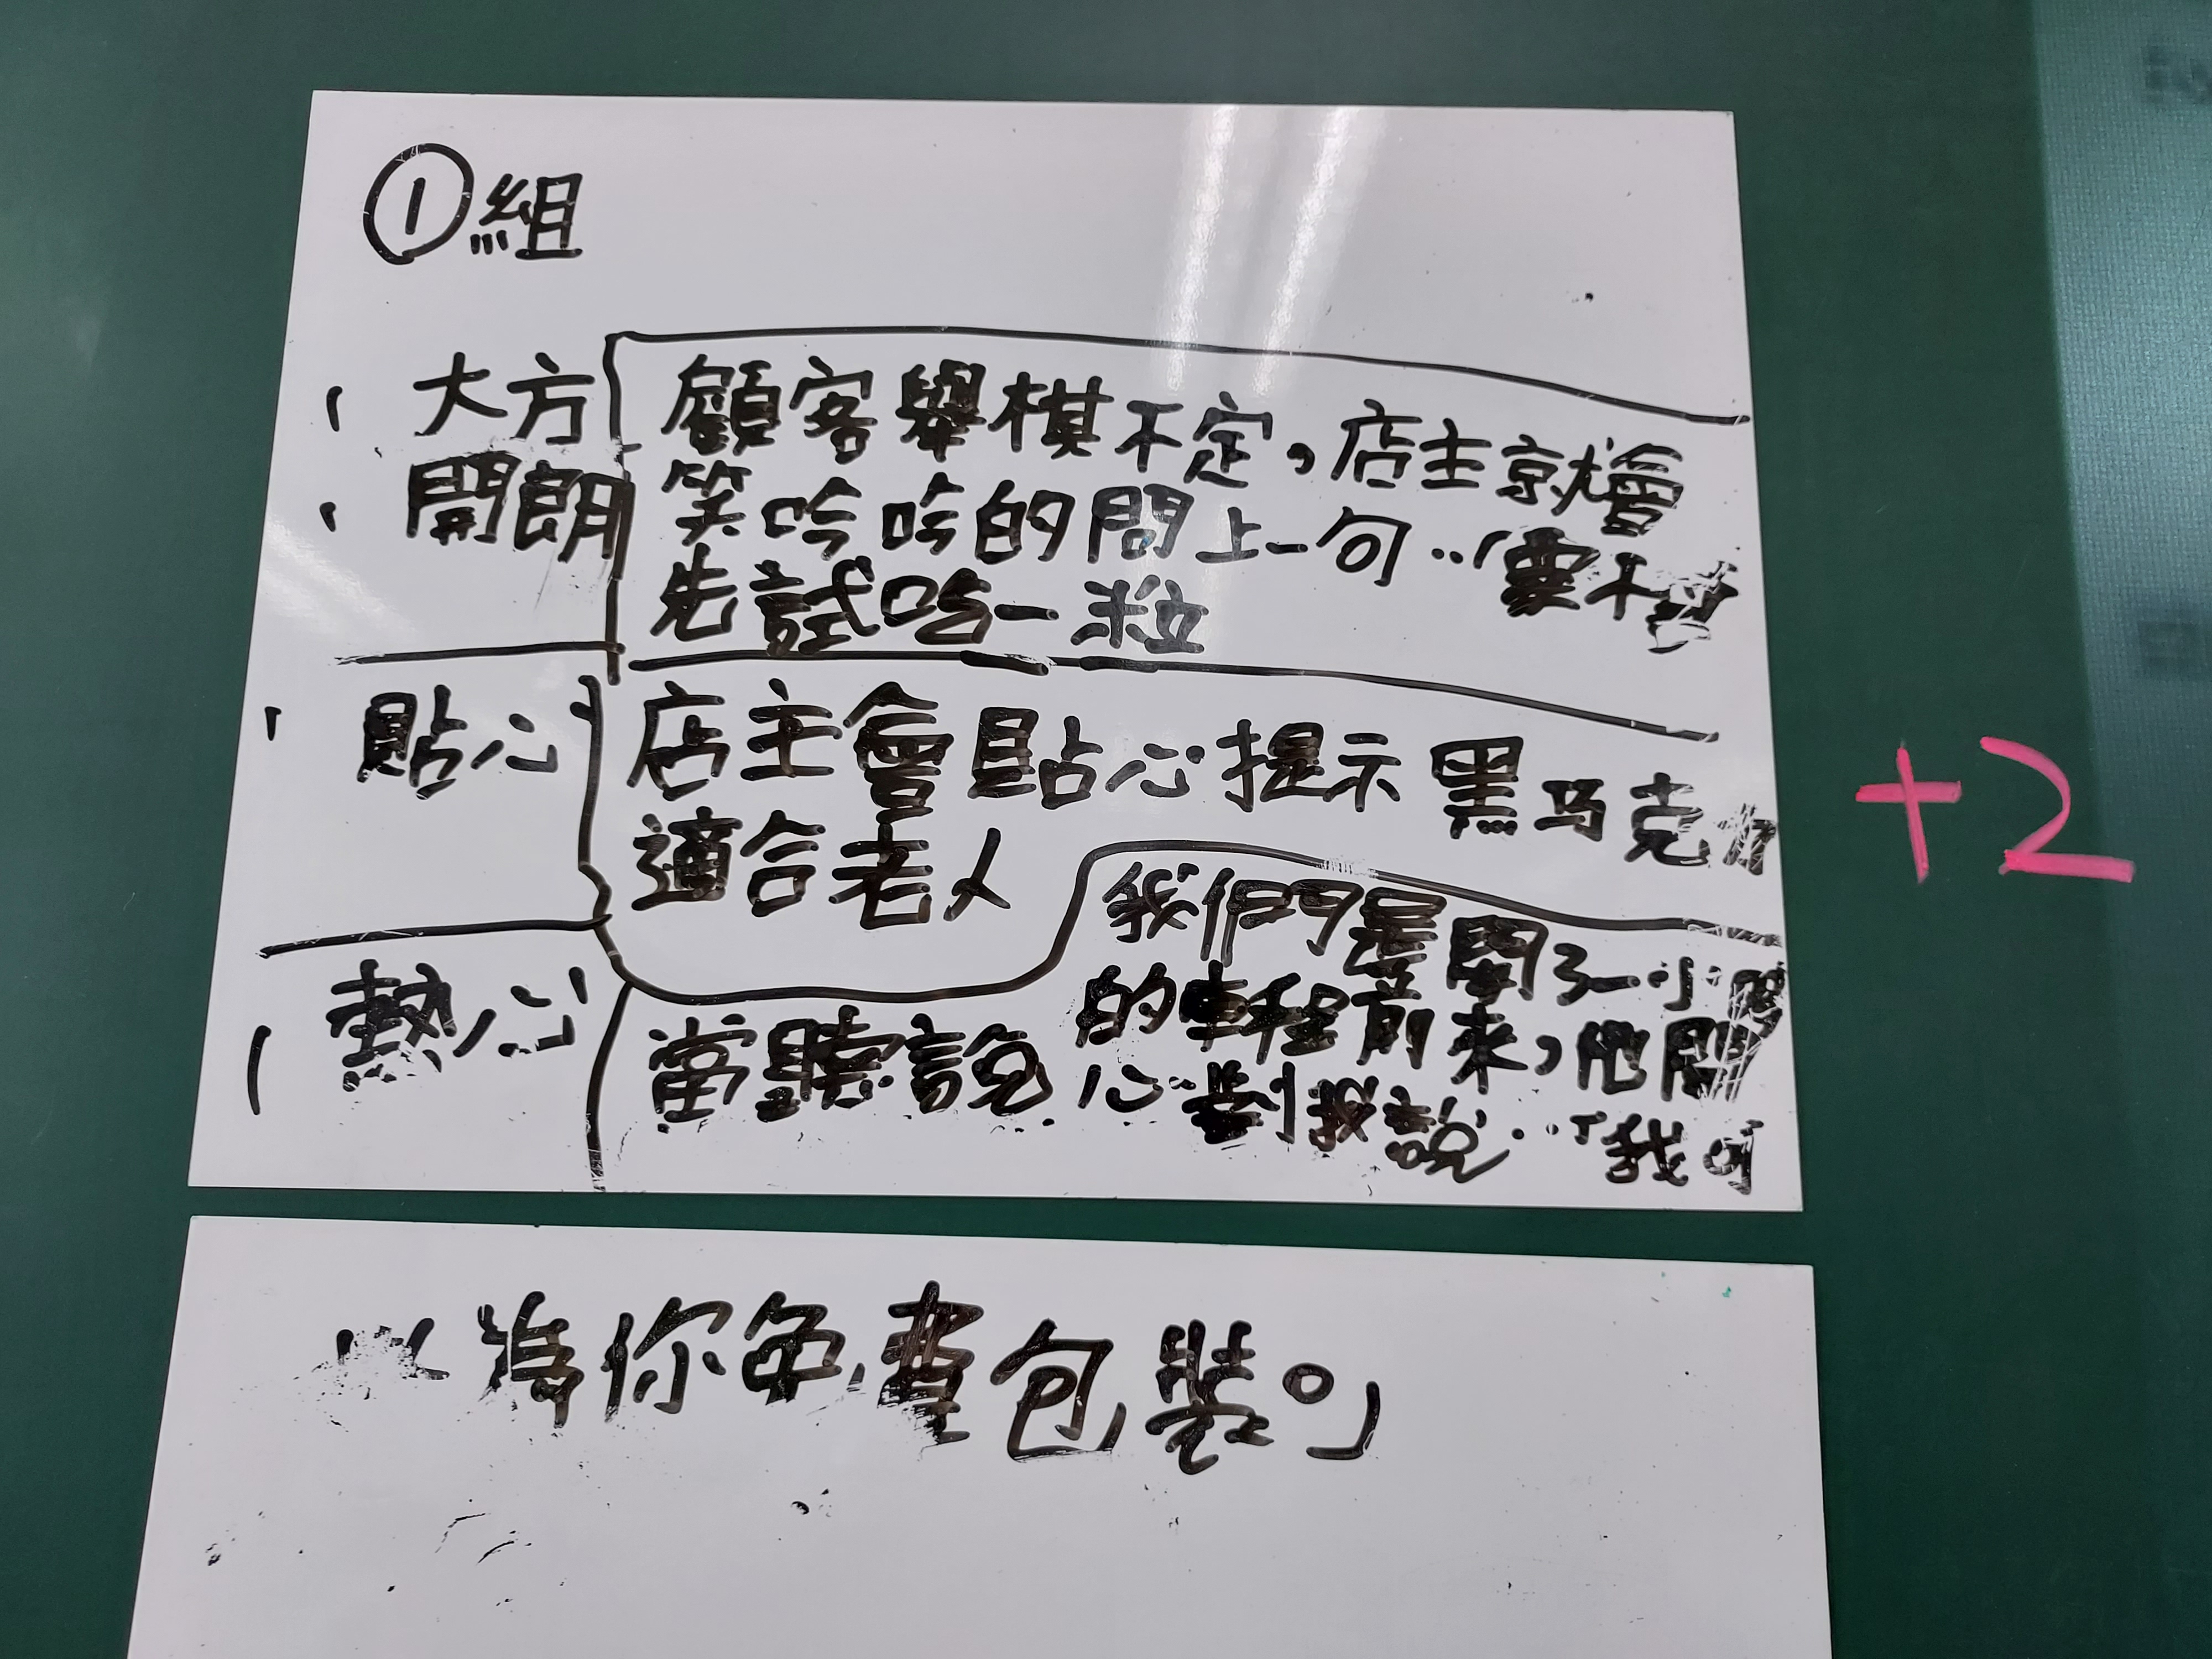 ①組
大方
開朗
顧客舉棋不定，店主就會
笑吟吟的問上一句：「要不要
先試吃一粒
貼心
店主會貼心提示黑马克力
適合老人
熱心
當聽說
我們是開了一小時
的車程前來，他開
心對我說：「我可
以為你免費包裝。」
+2